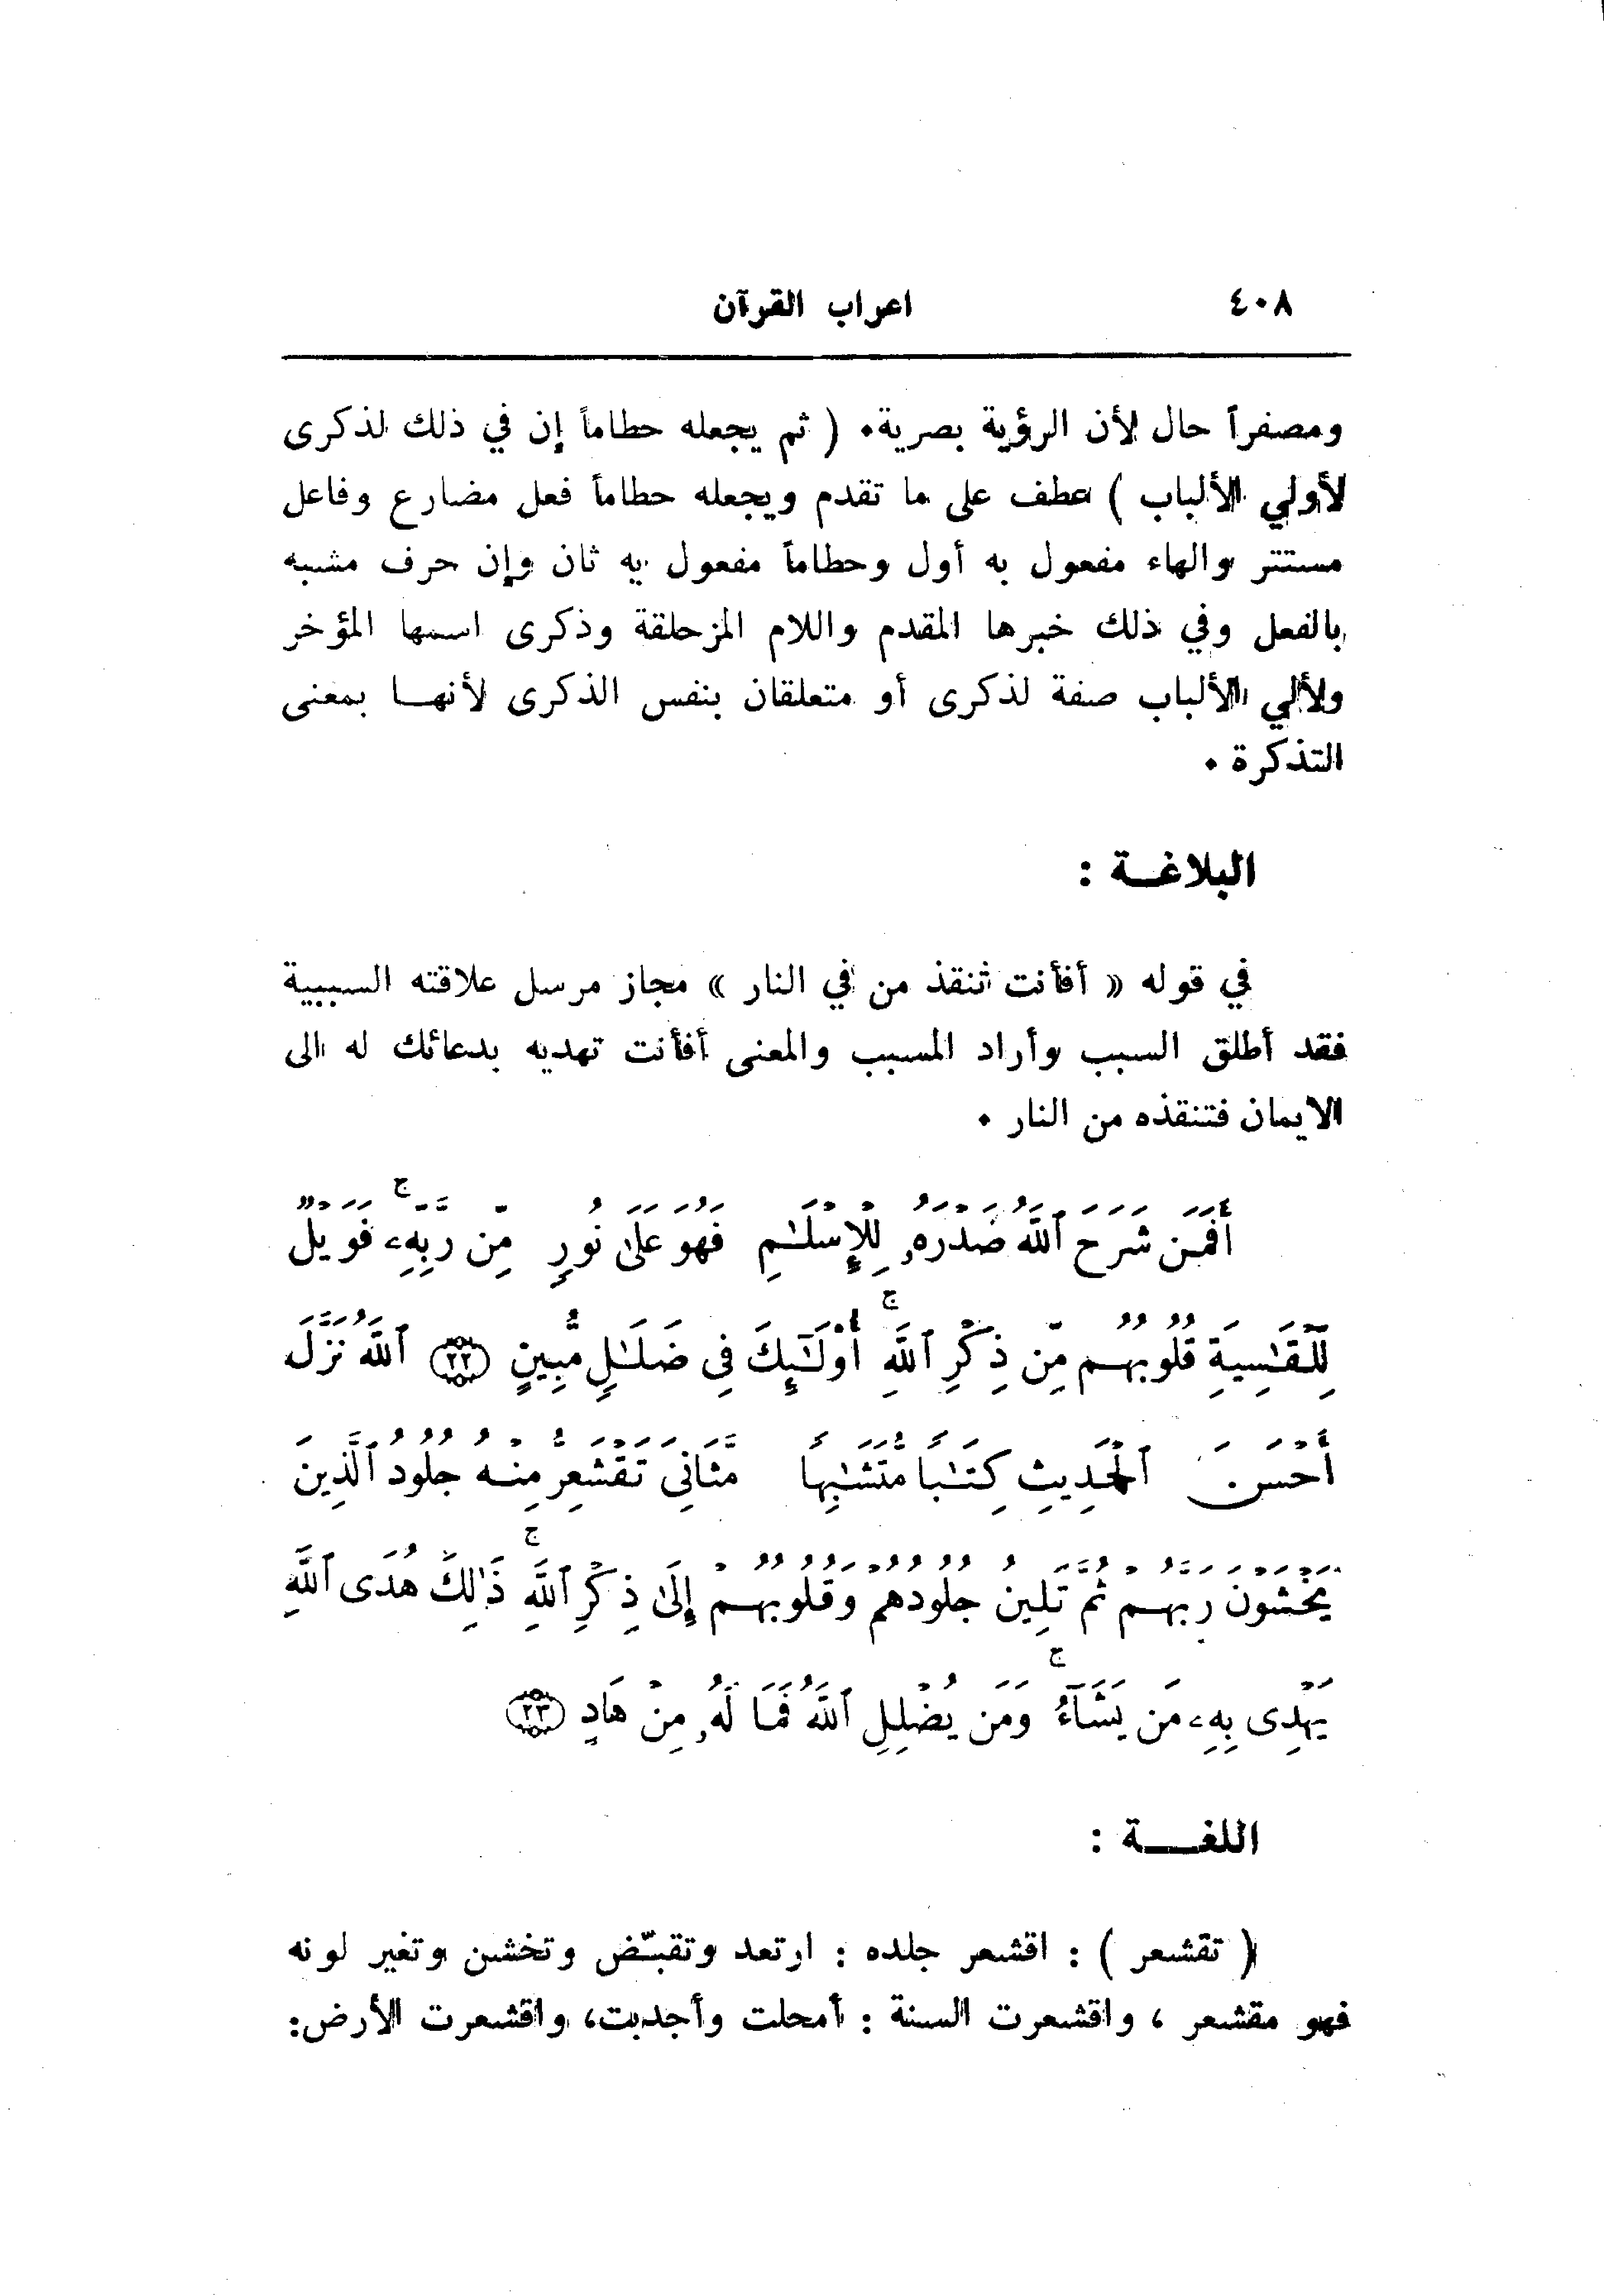 ٤٠٨ اعراب القرآن
ومصفراً حال لأن الرؤية بصرية. ( ثم يجعله حطاماً إن في ذلك لذكرى
لأولي الألباب ) عطف على ما تقدم ويجعله حطاماً فعل مضارع وفاعل
مستتر والهاء مفعول به أول وحطاماً مفعول به ثان وإن حرف مشبه
بالفعل وفي ذلك خبرها المقدم واللام المزحلقة وذكرى اسمها المؤخر
ولألي الألباب صفة لذكرى أو متعلقان بنفس الذكرى لأنهـا بمعنى
التذكرة .
البلاغـة :
في قوله « أفأنت تنقذ من في النار » مجاز مرسل علاقته السببية
فقد أطلق السبب وأراد المسبب والمعنى أفأنت تهديه بدعائك له الى
الايمان فتنقذه من النار .
أَفَمَن شَرَحَ ٱللَّهُ صَدْرَهُۥ لِلْإِسْلَـٰمِ فَهُوَ عَلَىٰ نُورٍ مِّن رَّبِّهِۦ ۚ فَوَيْلٌ
لِّلْقَـٰسِيَةِ قُلُوبُهُم مِّن ذِكْرِ ٱللَّهِ ۚ أُو۟لَـٰٓئِكَ فِى ضَلَـٰلٍ مُّبِينٍ ﴿٢٢﴾ ٱللَّهُ نَزَّلَ
أَحْسَنَ ٱلْحَدِيثِ كِتَـٰبًا مُّتَشَـٰبِهًا مَّثَانِىَ تَقْشَعِرُّ مِنْهُ جُلُودُ ٱلَّذِينَ
يَخْشَوْنَ رَبَّهُمْ ثُمَّ تَلِينُ جُلُودُهُمْ وَقُلُوبُهُمْ إِلَىٰ ذِكْرِ ٱللَّهِ ۚ ذَٰلِكَ هُدَى ٱللَّهِ
يَهْدِى بِهِۦ مَن يَشَآءُ ۚ وَمَن يُضْلِلِ ٱللَّهُ فَمَا لَهُۥ مِنْ هَادٍ ﴿٢٣﴾
اللغـــة :
( تقشعر ) : اقشعر جلده : ارتعد وتقبّض وتخشن وتغير لونه
فهو مقشعر ، واقشعرت السنة : أمحلت وأجدبت، واقشعرت الأرض: